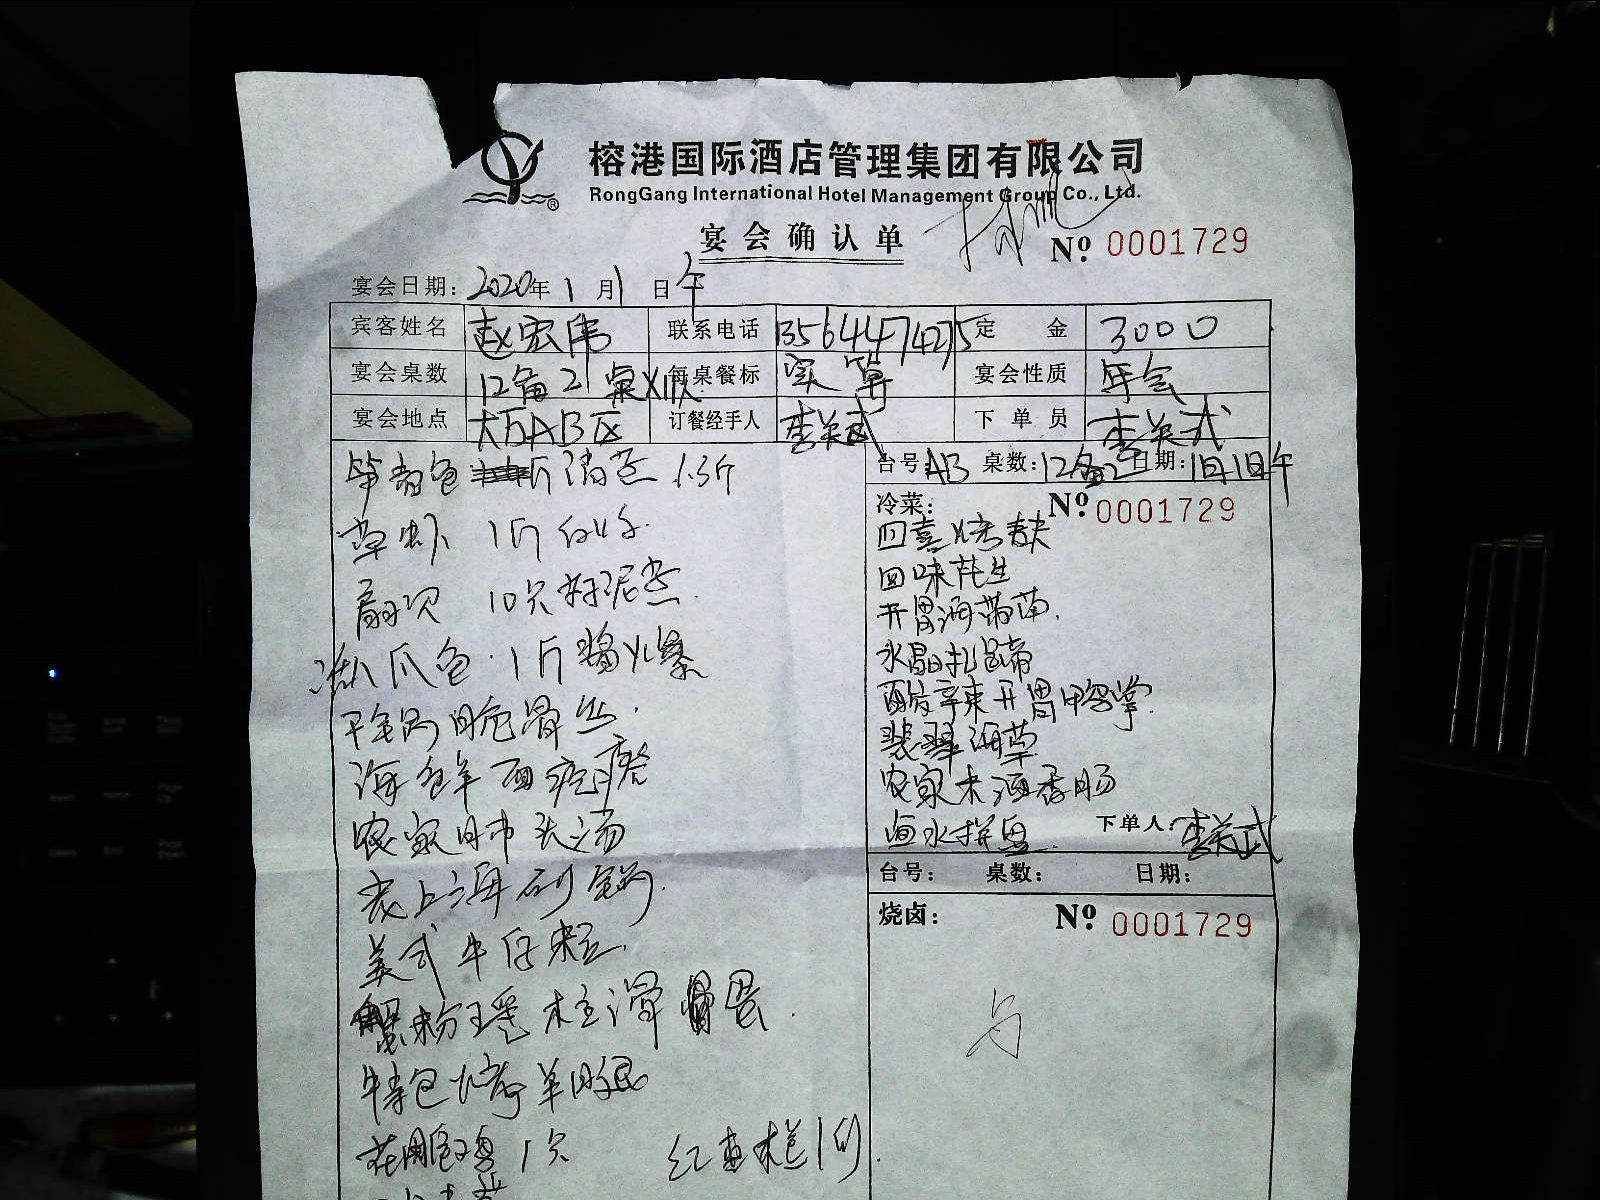 榕港国际酒店管理集团有限公司
RongGang International Hotel Management Group Co., Ltd.
宴会确认单
№ 0001729
宴会日期：2020年1月1日午
宾客姓名 赵宏伟 联系电话 13564474275 定金 3000
宴会桌数 12备2 桌X11人 每桌餐标 实算 宴会性质 年会
宴会地点 大厅AB区 订餐经手人 李关式 下单员 李关式
台号：AB 桌数：12备2 日期：1月1日午
冷菜： № 0001729
四喜烤麸
回味花生
开胃海带苗
水晶扎蹄
酸辛辣开胃鸭掌
翡翠海草
农家米酒香肠
卤水拼盘
下单人：李关式
台号： 桌数： 日期：
烧卤： № 0001729
笋壳鱼 斤清蒸 1.3斤
草虾 1斤白灼
扇贝 10只 蒜泥蒸
八爪鱼 1斤酱爆
干锅
海鲜面疙瘩
农家 汤
老上海砂锅
美式牛仔粒
蟹粉瑶柱滑 蛋
特色烤羊腿
花雕鸡1只
红枣糕1份